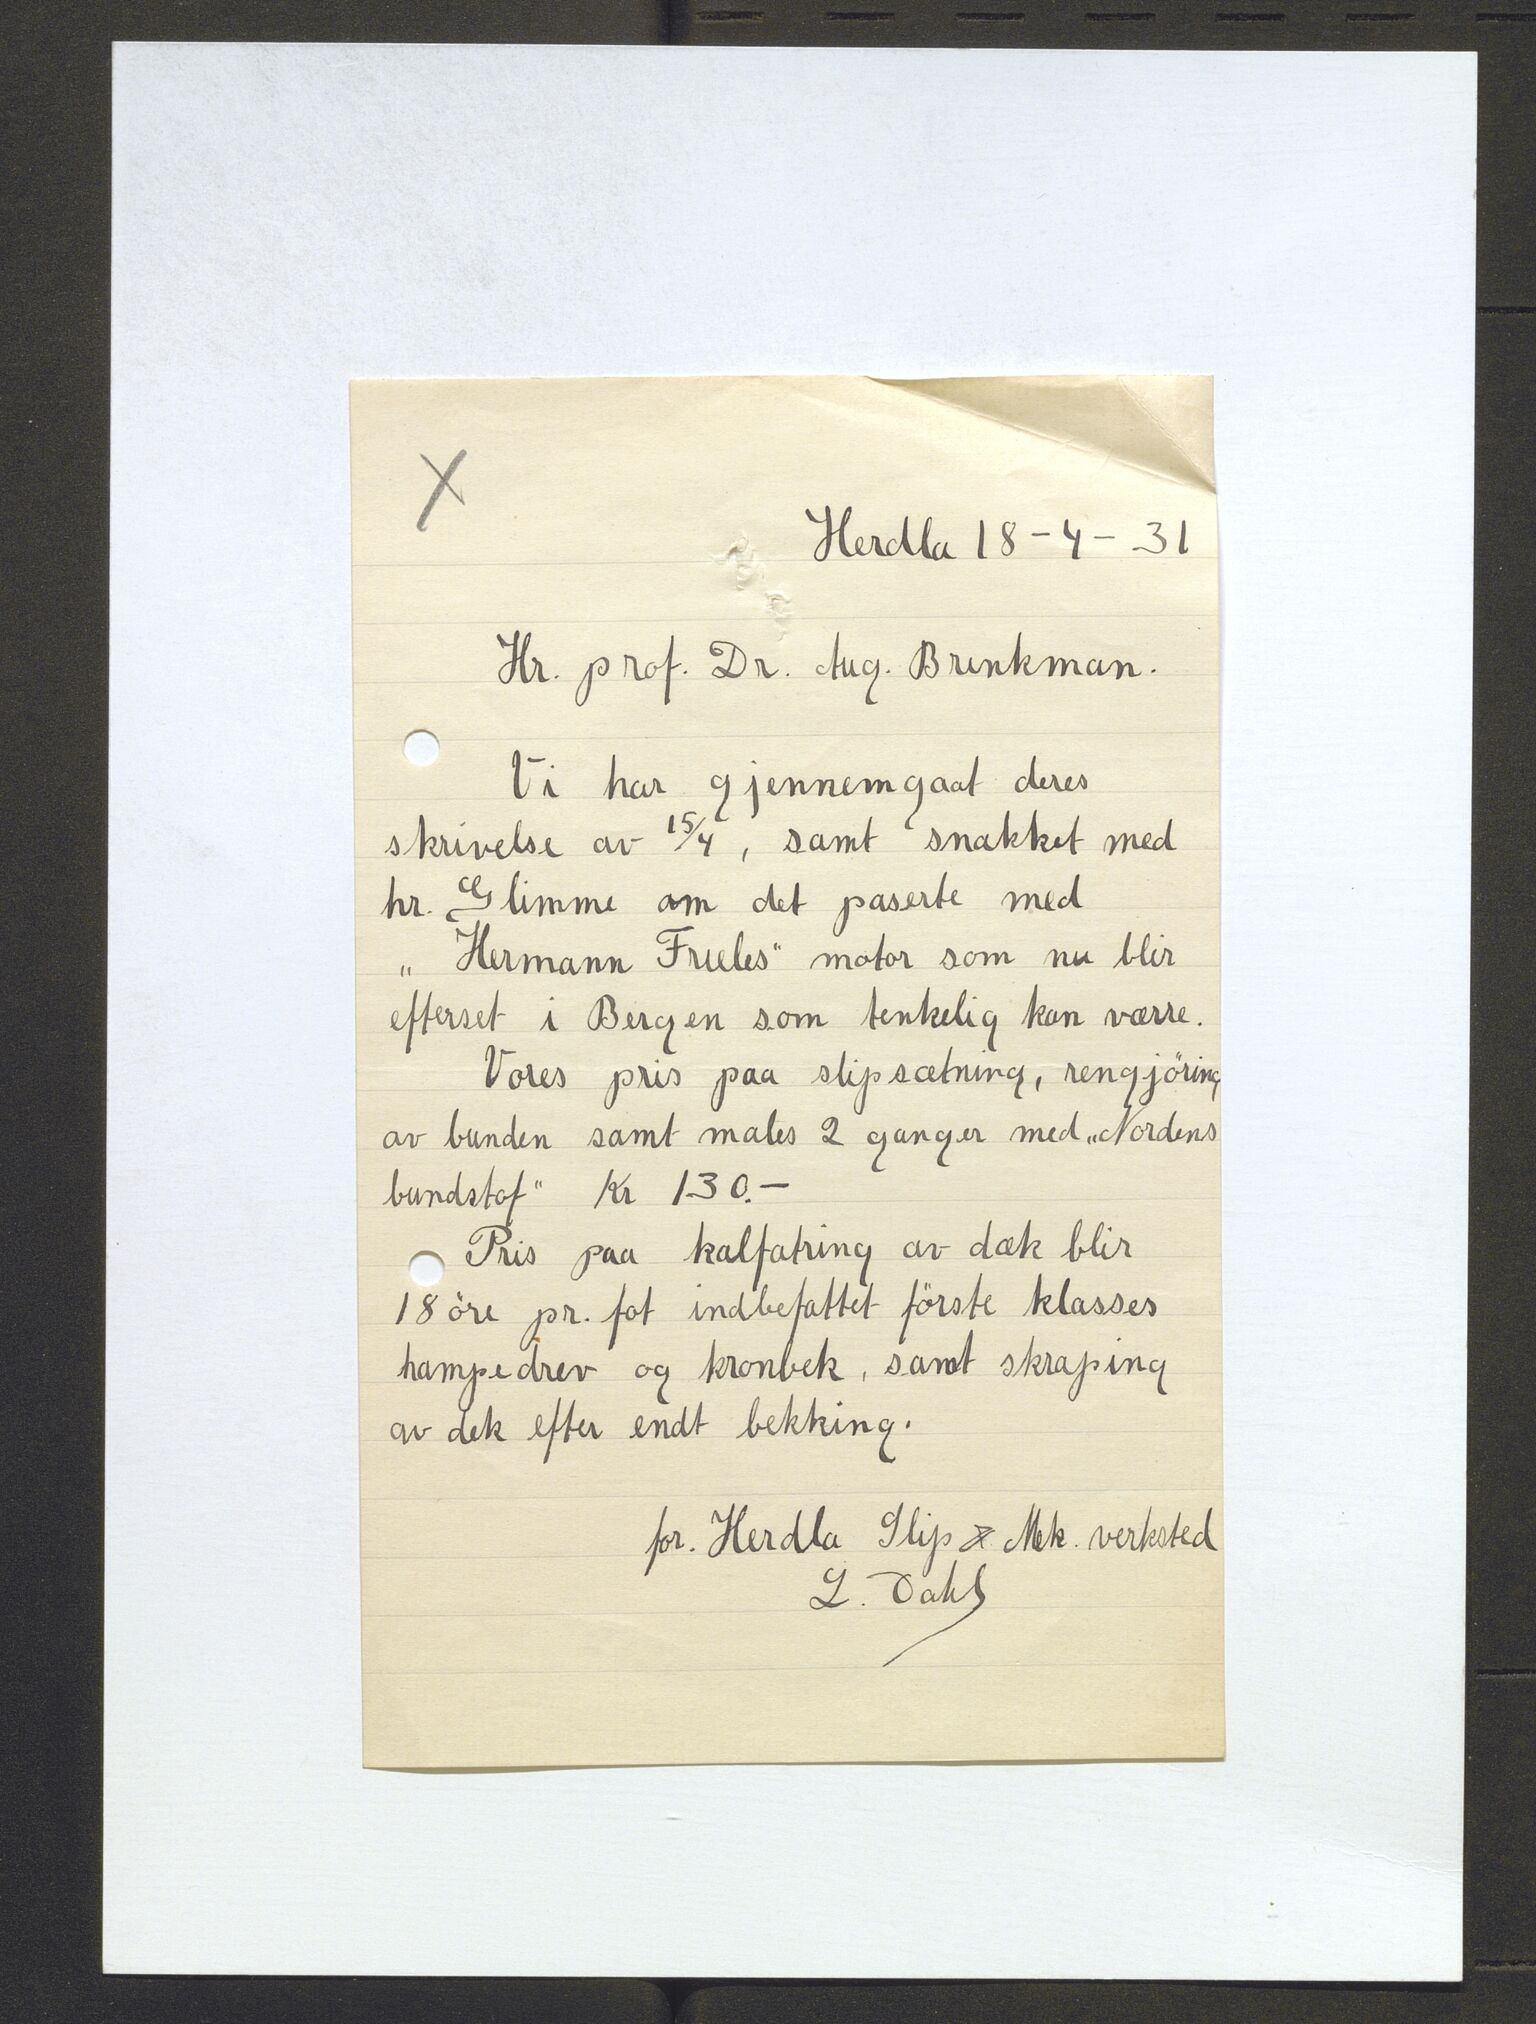 X
Herdla 18-4-31
Hr. prof. Dr. Aug. Brinkman.
Vi har gjennemgaat deres
skrivelse av 15/4, samt snakket med
hr. Glimme om det paserte med
„Hermann Frieles" motor som nu blir
efterset i Bergen som tenkelig kan værre.
Vores pris paa slipsætning, rengjöring
av bunden samt males 2 ganger med „Nordens
bundstof" Kr 130.-
Pris paa kalfatring av dæk blir
18 öre pr. fot indbefattet förste klasses
hampedrev og kronbek, samt skraping
av dek efter endt bekking.
for. Herdla Slip & Mek. verksted
L. Dahl